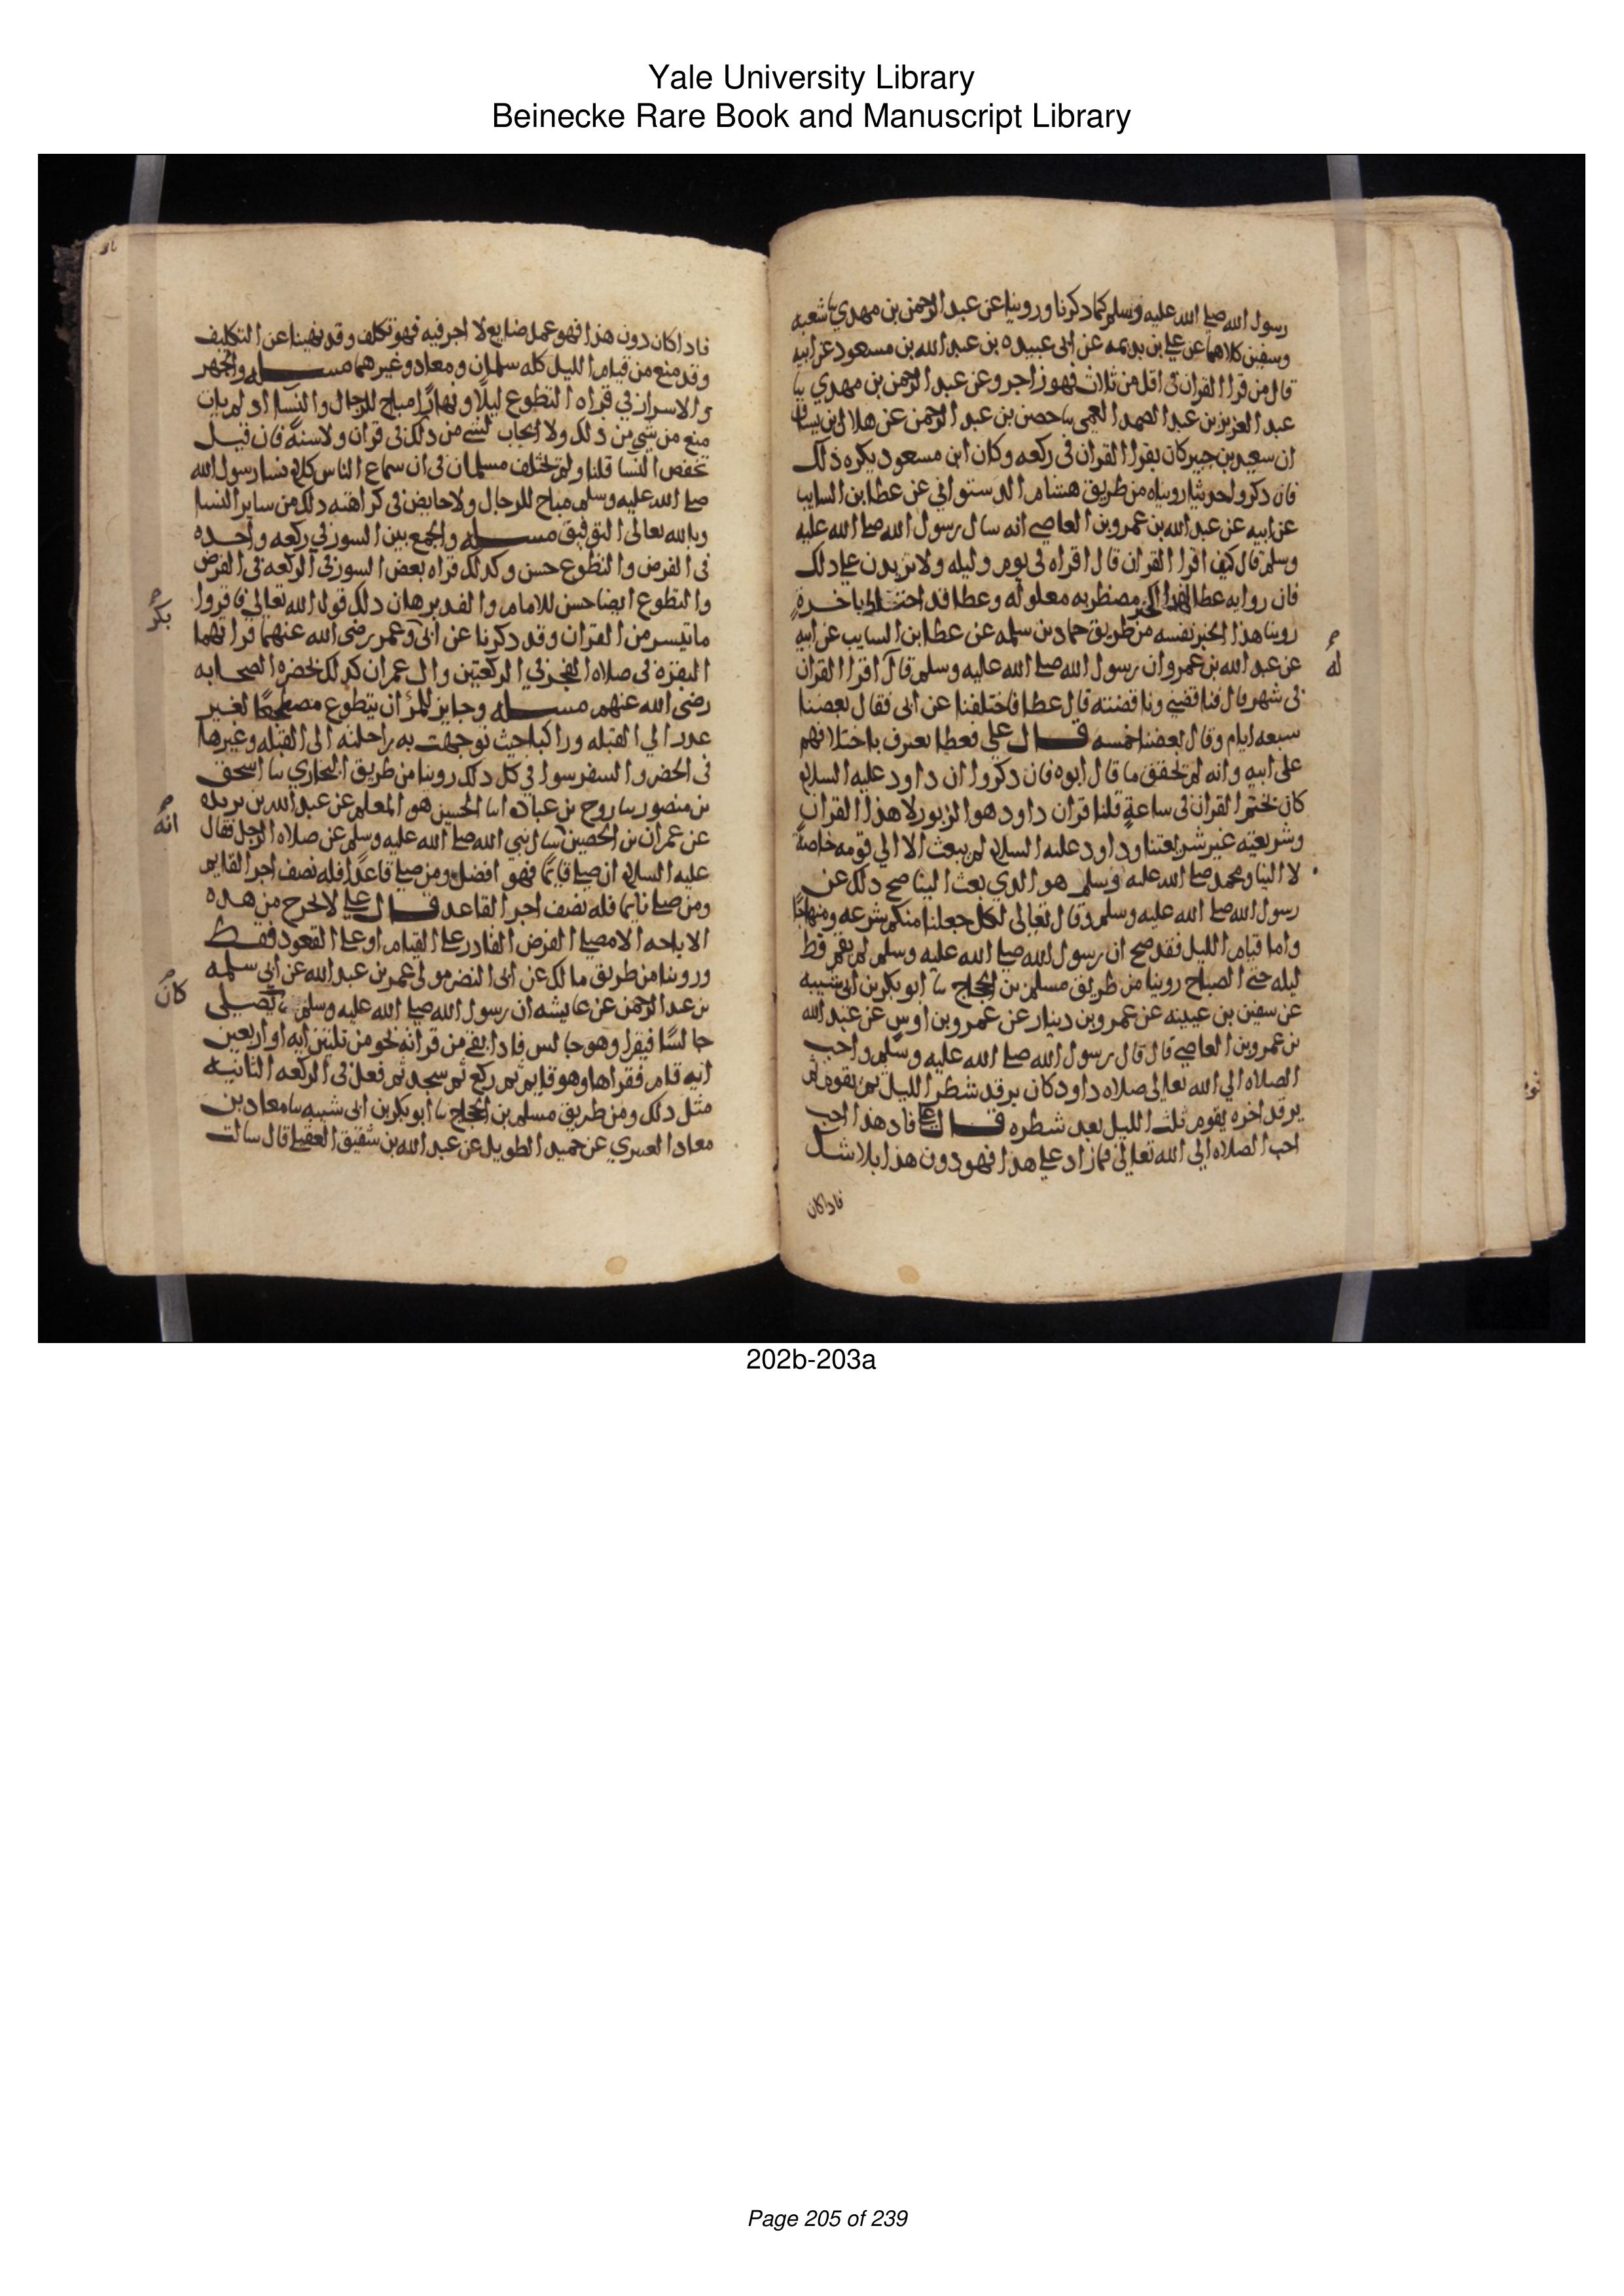 Yale University Library
Beinecke Rare Book and Manuscript Library
رسول الله صلى الله عليه وسلم كما دكرنا وروينا عن عبد الرحمن بن مهدي نا شعبه
وسفين كلاهما عن علي بن بديمه عن ابى عبيده بن عبد الله بن مسعود عن ابيه
قال من قرا القران فى اقل من ثلاث فهو راجز وعن عبد الرحمن بن مهدي نا
عبد العزيز بن عبد الصمد العمي نا حصن بن عبد الرحمن عن هلال بن يساف
ان سعيد بن جبير كان يقرا القران فى ركعه وكان ابن مسعود يكره ذلك
فان دكروا حديثا رويناه من طريق هشام الدستوائي عن عطا ابن السايب
عن ابيه عن عبد الله بن عمرو بن العاصي انه سال رسول الله صلى الله عليه
وسلم قال كيف اقرا القران قال اقراه فى يوم وليله ولا تزيدن على دلك
فان روايه عطا لهذا الخبر مضطربه معلوله وعطا قد اختلط باخرةٍ
روينا هذا الخبر نفسه من طريق حماد بن سلمه عن عطا ابن السايب عن ابيه
له
عن عبد الله بن عمرو ان رسول الله صلى الله عليه وسلم قال اقرا القران
فى شهر قال فناقضني وناقضته قال عطا فاختلفنا عن ابى فقال بعضنا
سبعه ايام وقال بعضنا خمسه قال علي فعطا يعترف باختلافهم
على ابيه وانه لم يحقق ما قال ابوه فان دكروا ان داود عليه السلام
كان يختم القران فى ساعةٍ قلنا قران داود هو الزبور لا هذا القران
وشريعته غير شريعتنا وداود عليه السلام لم يبعث الا الي قومه خاصةً
لا الينا ومحمد صلى الله عليه وسلم هو الدي بعث الينا صح دلك عن
رسول الله صلى الله عليه وسلم وقال تعالى لكل جعلنا منكم شرعه ومنهاجًا
واما قيام الليل فقد صح ان رسول الله صلى الله عليه وسلم لم يقم قط
ليله حتى الصباح روينا من طريق مسلم بن الحجاج نا ابو بكر بن ابى شيبه
عن سفين بن عيينه عن عمرو بن دينار عن عمرو بن اوس عن عبد الله
بن عمرو بن العاصي قال قال رسول الله صلى الله عليه وسلم واحب
الصلاه الي الله تعالى صلاه داود كان يرقد شطر الليل ثم يقوم ثم
يرقد اخره يقوم ثلث الليل بعد شطره قال علي فاد هذا احب
احب الصلاه الى الله تعالى فما زاد على هذا فهو دون هذا بلا شك
فاداكان
فاداكان دون هذا فهو عمل ضايع لا اجر فيه فهو تكلف وقد نهينا عن التكليف
وقد منع من قيام الليل كله سلمان ومعاد وغيرهما مسله والجهر
والاسرار في قراه التطوع ليلًا ونهارًا مباح للرجال والنسا اد لم يات
منع من شي من دلك ولا ايجاب لشي من دلك فى قران ولا سنةٍ فان قيل
تخفض النسا قلنا ولم يختلف مسلمان فى ان سماع الناس كلام نسا رسول الله
صلى الله عليه وسلم مباح للرجال ولا جا نص فى كراهته دلك من ساير النسا
وبالله تعالى التوفيق مسله والجمع بين السور في ركعه واحده
فى الفرض والتطوع حسن وكدلك قراه بعض السور فى الركعه فى الفرض
والتطوع ايضا حسن للامام والفد برهان دلك قول الله تعالى فاقروا
ما تيسر من القران وقد دكرنا عن ابى وعمر رضى الله عنهما قراتهما
بكر
البقره فى صلاه الفجر في الركعتين وال عمران كدلك بحضره الصحابه
رضى الله عنهم مسله وجايز للمرْ ان يتطوع مضطجعًا لغير
عدر الي القبله وراكبا حيث توجهت به راحلته الى القبله وغيرها
فى الحضر والسفر سوا في كل دلك روينا من طريق البخاري نا اسحق
بن منصور نا روح بن عباده انا الحسين هو المعلم عن عبد الله بن بريده
انه
عن عمران بن الحصين سال نبي الله صلى الله عليه وسلم عن صلاه الرجل فقال
عليه السلام ان صلى قايمًا فهو افضل ومن صلى قاعدًا فله نصف اجر القايم
ومن صلى نايما فله نصف اجر القاعد قال علي لا يخرج من هده
الاباحه الا مصلى الفرض القادر على القيام او على القعود فقط
وروينا من طريق مالك عن ابى النضر مولى عمر بن عبد الله عن ابي سلمه
كان
بن عبد الرحمن عن عايشه ان رسول الله صلى الله عليه وسلم يصلى
جالسًا فيقرا وهو جالس فادا بقي من قراته نحو من ثلثين ايه او اربعين
ايه قام فقراها وهو قايم ثم ركع ثم سجد ثم فعل فى الركعه الثانيه
مثل دلك ومن طريق مسلم بن الحجاج نا ابو بكر بن ابى شيبه نا معاد بن
معاد العنبري عن حميد الطويل عن عبد الله بن شقيق العقيلي قال سالت
202b-203a
Page 205 of 239